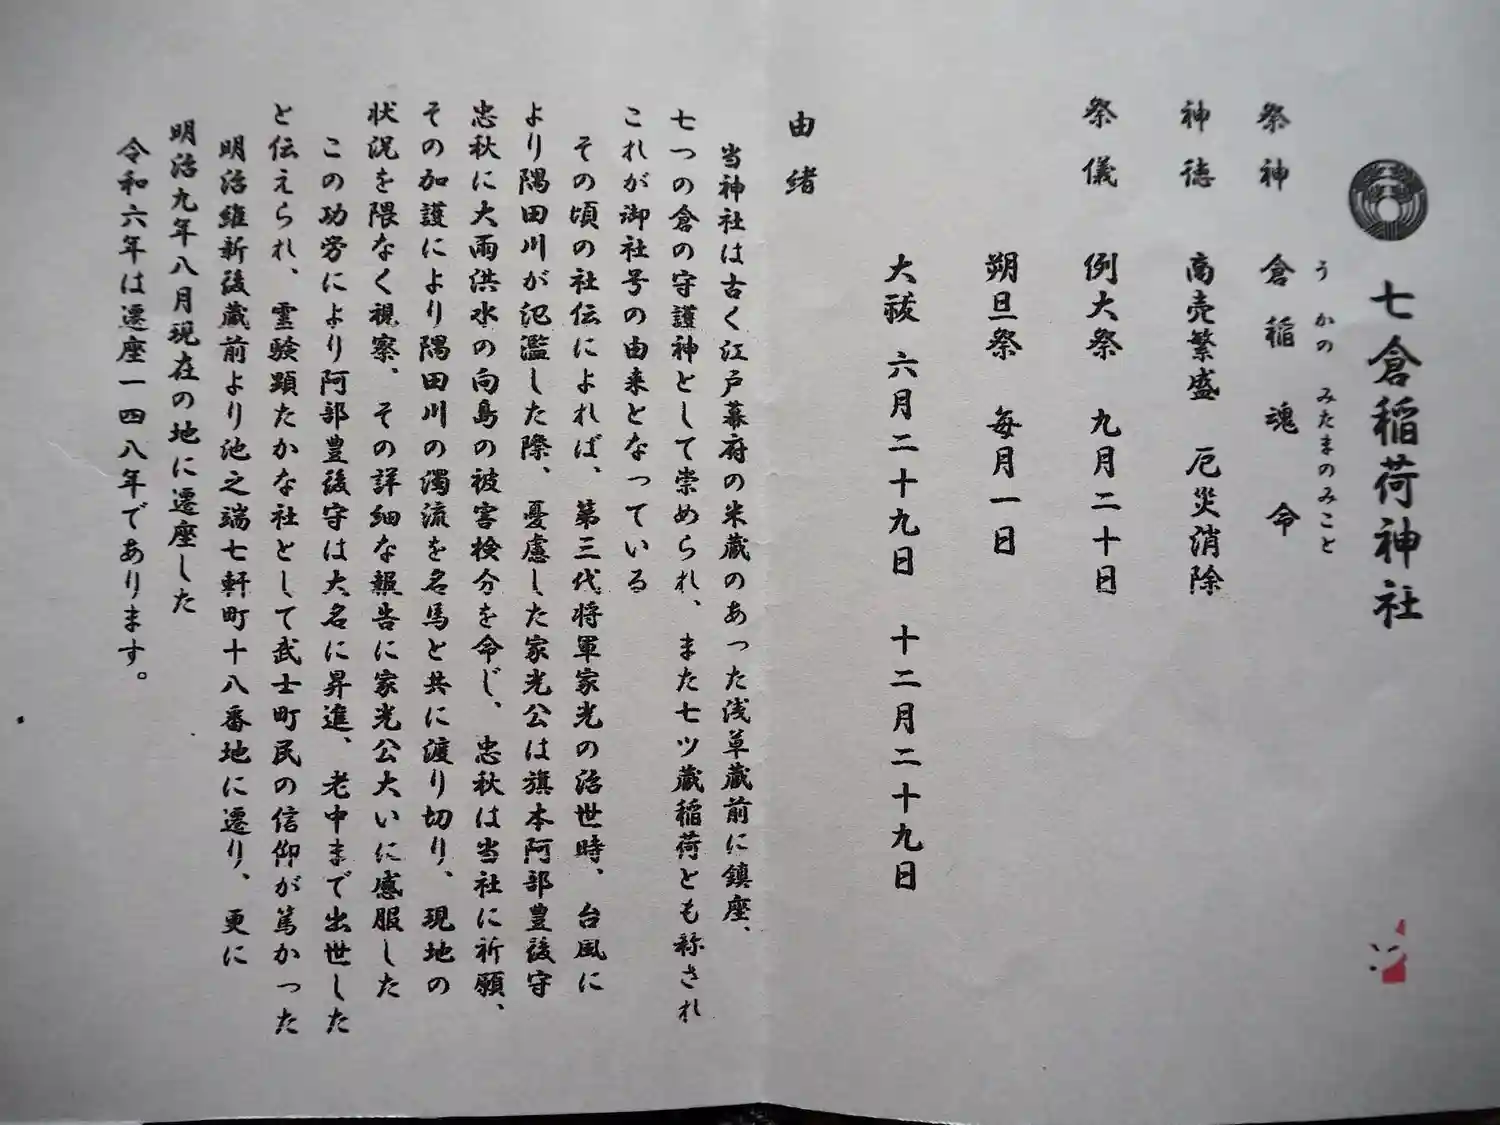 七倉稲荷神社
うかの みたまのみこと
祭神 倉稲魂命
神徳 商売繁盛 厄災消除
祭儀 例大祭 九月二十日
朔旦祭 毎月一日
大祓 六月二十九日 十二月二十九日
由緒
当神社は古く江戸幕府の米蔵のあった浅草蔵前に鎮座、
七つの倉の守護神として崇められ、また七ツ蔵稲荷とも称され
これが御社号の由来となっている
その頃の社伝によれば、第三代将軍家光の治世時、台風に
より隅田川が氾濫した際、憂慮した家光公は旗本阿部豊後守
忠秋に大雨洪水の向島の被害検分を命じ、忠秋は当社に祈願、
その加護により隅田川の濁流を名馬と共に渡り切り、現地の
状況を隈なく視察、その詳細な報告に家光公大いに感服した
この功労により阿部豊後守は大名に昇進、老中まで出世した
と伝えられ、霊験顕たかな社として武士町民の信仰が篤かった
明治維新後蔵前より池之端七軒町十八番地に遷り、更に
明治九年八月現在の地に遷座した
令和六年は遷座一四八年であります。